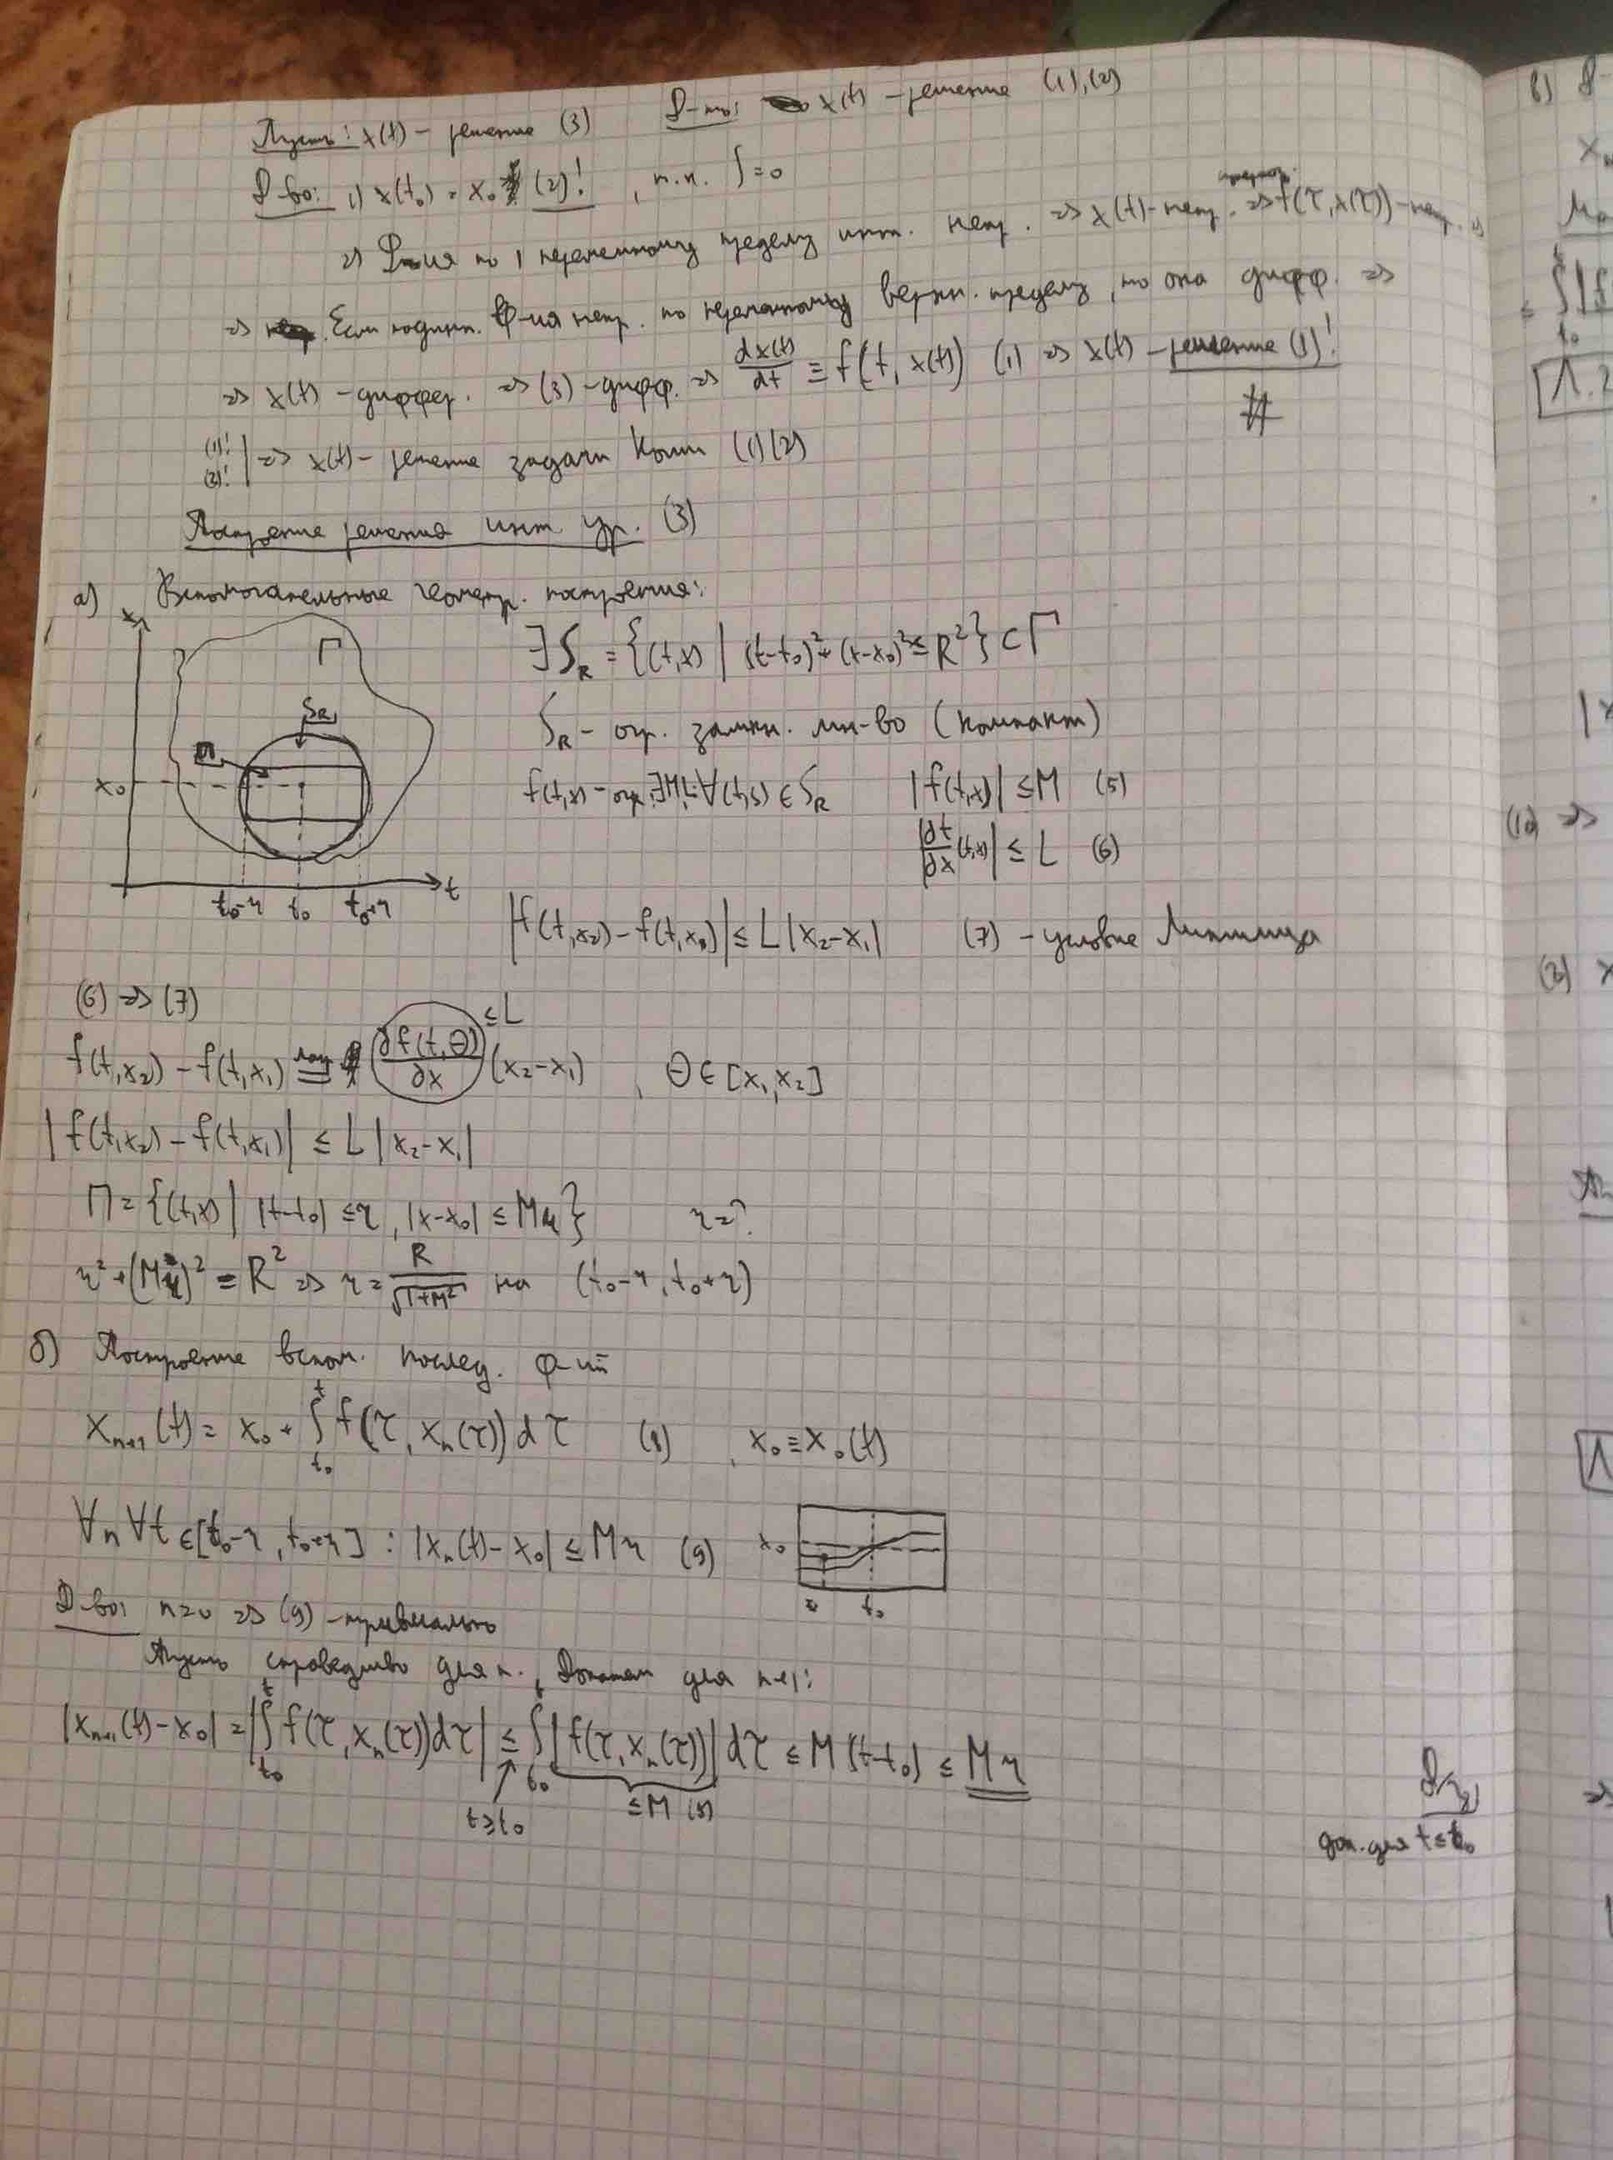 Пусть: x(t) – решение (3)   Д-ть: x(t) – решение (1),(2)
Д-во: 1) x(t₀) = x₀ (2)! , т.к. ∫=0
2) Ф-ия по 1 переменному пределу инт. непр. => x(t)-непр. => f(τ,x(τ))-непр. =>
=> Если подынт. ф-ия непр. по переменному верхн. пределу, то она дифф. =>
=> x(t) – диффер. => (3) – дифф. => dx(t)/dt ≡ f(t, x(t)) (1) => x(t) – решение (1)!
#
(1)! (2)! | => x(t) – решение задачи Коши (1)(2)
Построение решения инт. ур. (3)
а) Вспомогательные геометр. построения:
x
Γ
S_R
П
x₀
t₀-η t₀ t₀+η t
∃ S_R = {(t,x) | (t-t₀)²+(x-x₀)² ≤ R²} ⊂ Γ
S_R – огр. замкн. мн-во (компакт)
∈ S_R   |f(t,x)| ≤ M (5)
|∂f/∂x (t,x)| ≤ L (6)
|f(t,x₂) – f(t,x₁)| ≤ L|x₂-x₁|   (7) – условие Липшица
(6) => (7)
f(t,x₂) – f(t,x₁) = ∂f(t,Θ)/∂x (x₂-x₁) , Θ ∈ [x₁,x₂]
≤ L
|f(t,x₂) – f(t,x₁)| ≤ L|x₂-x₁|
П = {(t,x) | |t-t₀| ≤ η, |x-x₀| ≤ Mη}   η = ?
η² + (Mη)² = R² => η = R/√(1+M²) на (t₀-η, t₀+η)
б) Построение вспом. послед. ф-ий
xₙ₊₁(t) = x₀ + ∫_{t₀}^{t} f(τ, xₙ(τ))dτ (8) , x₀ ≡ x₀(t)
∀n ∀t ∈ [t₀-η, t₀+η] : |xₙ(t) – x₀| ≤ Mη (9)
x₀
t₀
Д-во: n=0 => (9) – тривиально
Пусть справедливо для n. Докажем для n+1:
|xₙ₊₁(t) – x₀| = |∫_{t₀}^{t} f(τ, xₙ(τ))dτ| ≤ ∫_{t₀}^{t} |f(τ, xₙ(τ))| dτ ≤ M(t-t₀) ≤ Mη
t ≥ t₀   ≤ M (5)
Д/з
док. для t ≤ t₀